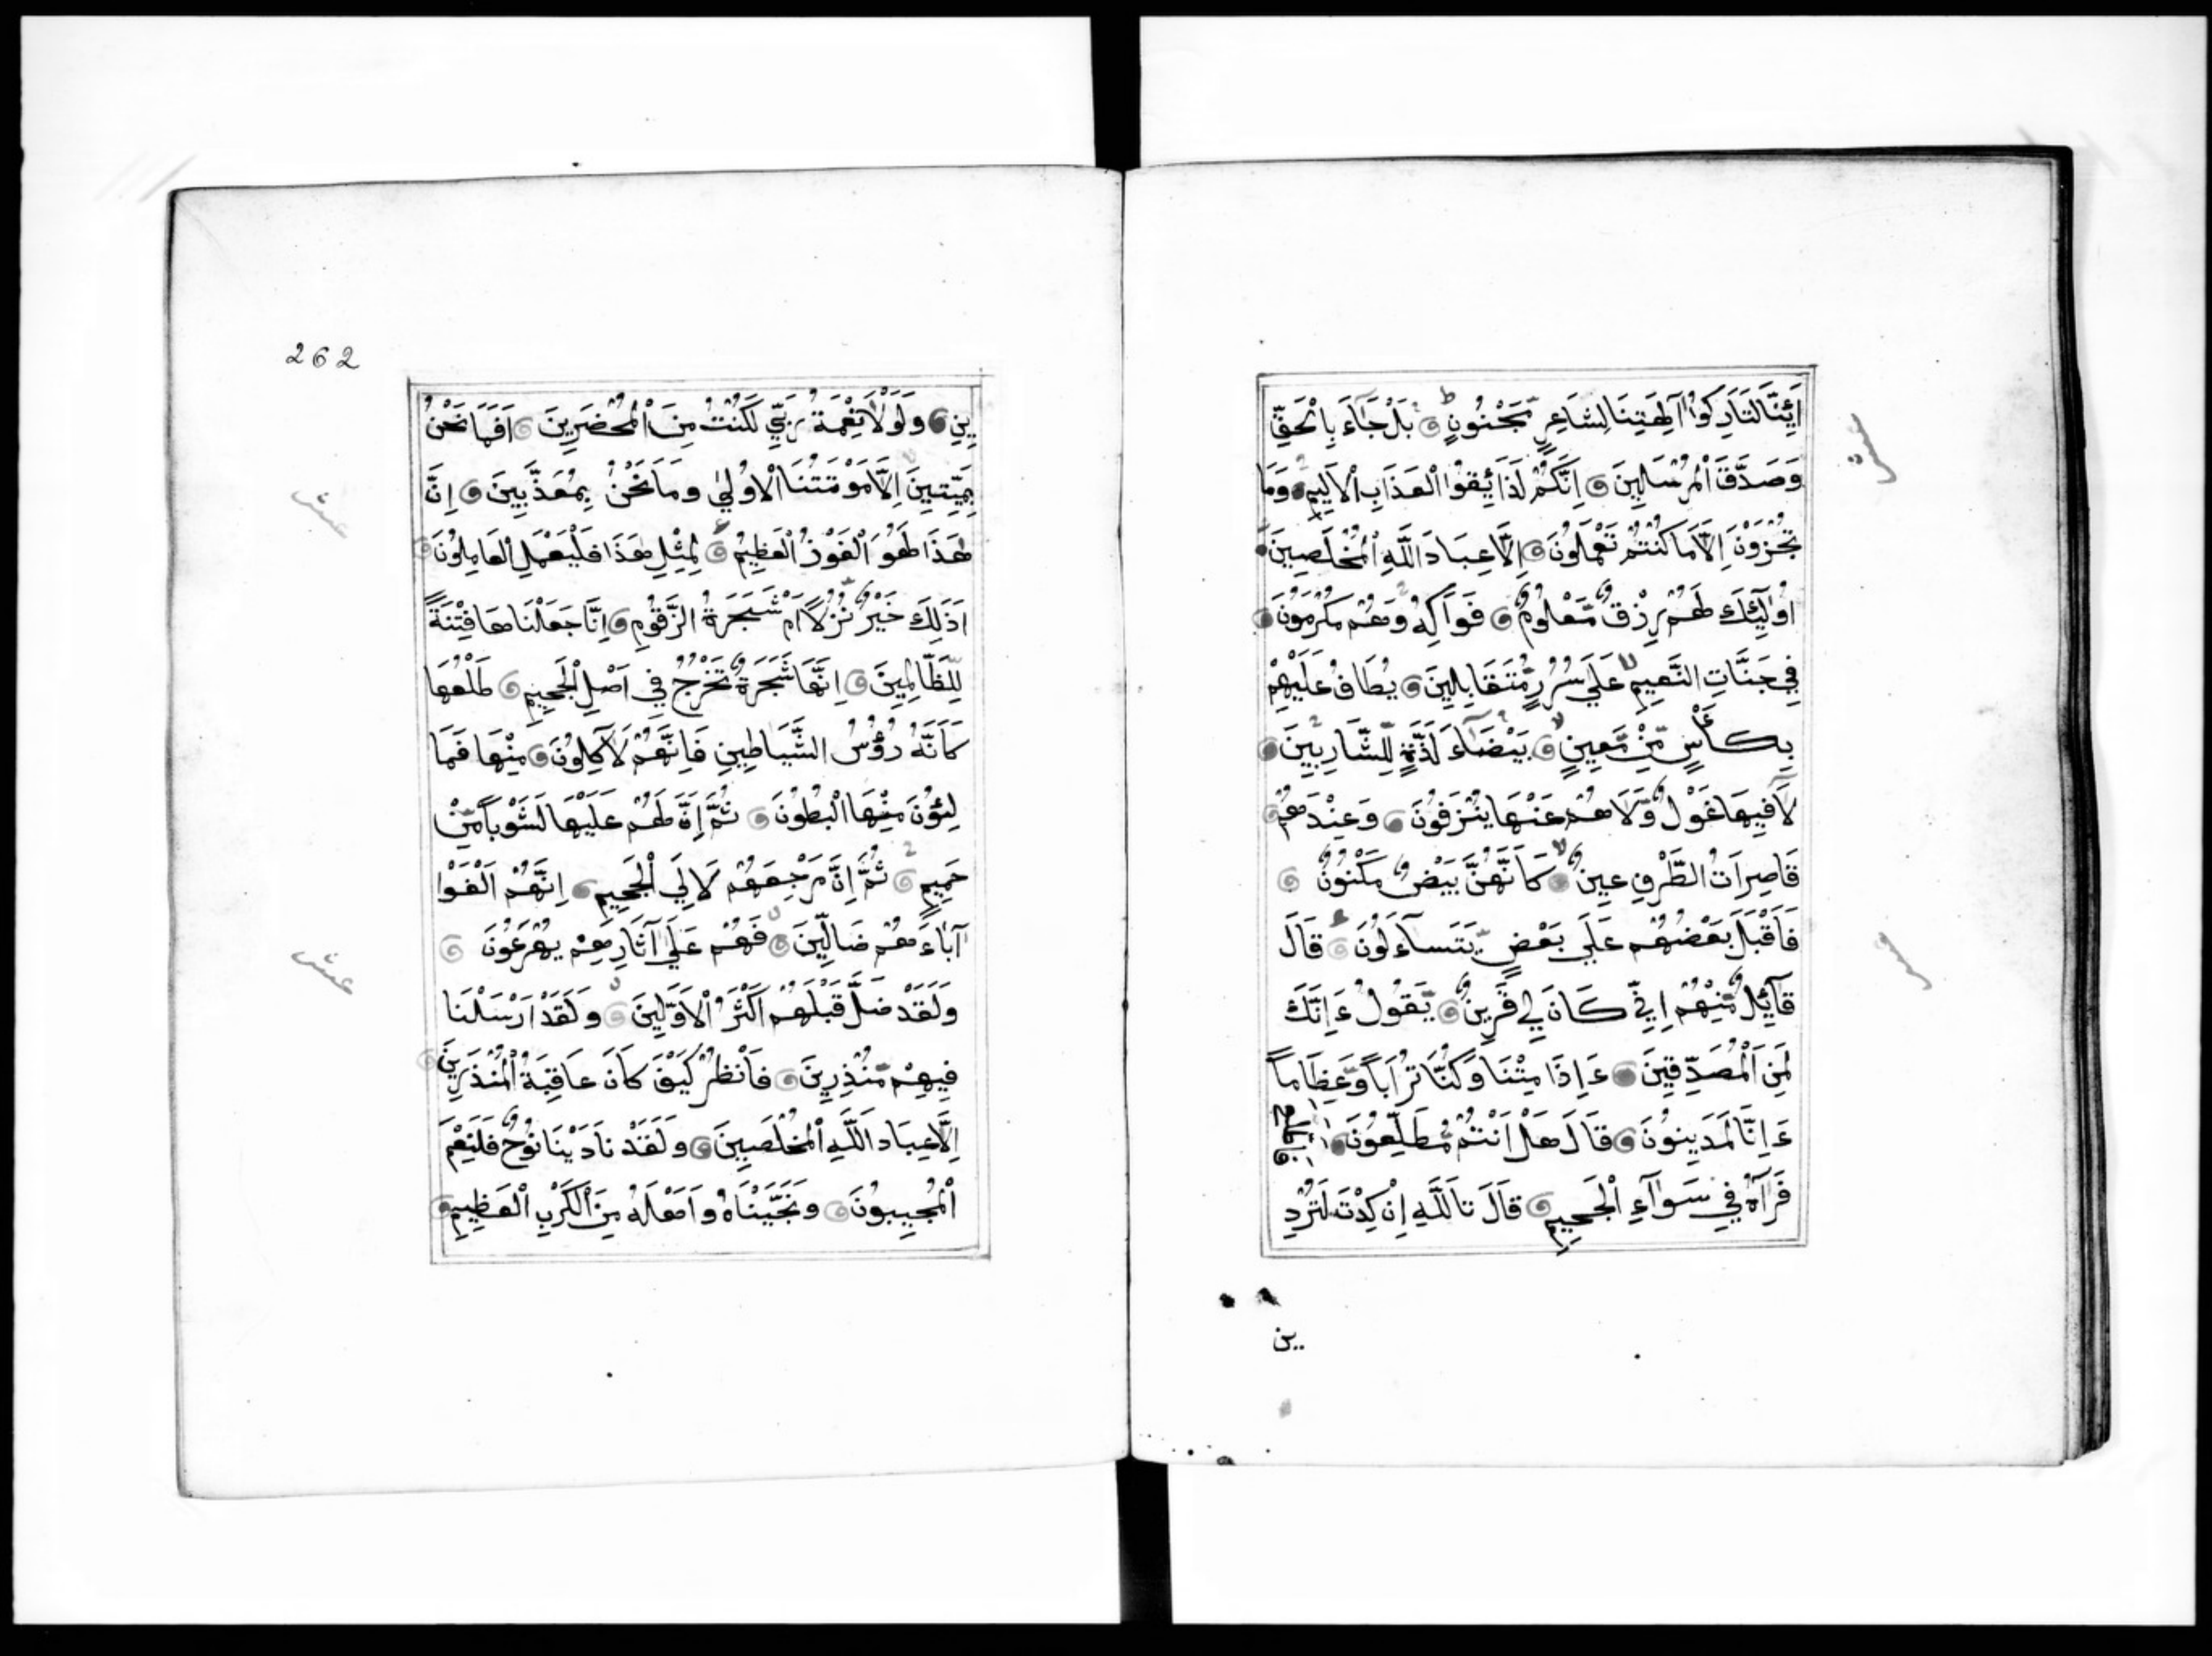 اَئِنَّا لَتَارِكُوا آلِهَتِنَا لِشَاعِرٍ مَّجْنُونٍ بَلْ جَاءَ بِالْحَقِّ
وَصَدَّقَ الْمُرْسَلِينَ اِنَّكُمْ لَذَائِقُوا الْعَذَابِ الْاَلِيمِ وَمَا
تُجْزَوْنَ اِلَّا مَا كُنْتُمْ تَعْمَلُونَ اِلَّا عِبَادَ اللَّهِ الْمُخْلَصِينَ
اُولٰئِكَ لَهُمْ رِزْقٌ مَّعْلُومٌ فَوَاكِهُ وَهُمْ مُكْرَمُونَ
فِي جَنَّاتِ النَّعِيمِ عَلَى سُرُرٍ مُّتَقَابِلِينَ يُطَافُ عَلَيْهِمْ
بِكَأْسٍ مِّنْ مَّعِينٍ بَيْضَاءَ لَذَّةٍ لِّلشَّارِبِينَ
لَا فِيهَا غَوْلٌ وَّلَا هُمْ عَنْهَا يُنْزَفُونَ وَعِنْدَهُمْ
قَاصِرَاتُ الطَّرْفِ عِينٌ كَاَنَّهُنَّ بَيْضٌ مَكْنُونٌ
فَاَقْبَلَ بَعْضُهُمْ عَلَى بَعْضٍ يَّتَسَآءَلُونَ قَالَ
قَآئِلٌ مِّنْهُمْ اِنِّي كَانَ لِي قَرِينٌ يَّقُولُ ءَاِنَّكَ
لَمِنَ الْمُصَدِّقِينَ ءَاِذَا مِتْنَا وَكُنَّا تُرَاباً وَّعِظَاماً
ءَاِنَّا لَمَدِينُونَ قَالَ هَلْ اَنْتُمْ مُّطَّلِعُونَ
فَرَآهُ فِي سَوَآءِ الْجَحِيمِ قَالَ تَاللَّهِ اِنْ كِدْتَ لَتُرْدِ
ين
262
ينِ وَلَوْلَا نِعْمَةُ رَبِّي لَكُنْتُ مِنَ الْمُحْضَرِينَ اَفَمَا نَحْنُ
بِمَيِّتِينَ اِلَّا مَوْتَتَنَا الْاُولٰي وَمَا نَحْنُ بِمُعَذَّبِينَ اِنَّ
هَذَا لَهُوَ الْفَوْزُ الْعَظِيمُ لِمِثْلِ هَذَا فَلْيَعْمَلِ الْعَامِلُونَ
اَذَلِكَ خَيْرٌ نُّزُلًا اَمْ شَجَرَةُ الزَّقُّومِ اِنَّا جَعَلْنَاهَا فِتْنَةً
لِّلظَّالِمِينَ اِنَّهَا شَجَرَةٌ تَخْرُجُ فِي اَصْلِ الْجَحِيمِ طَلْعُهَا
كَاَنَّهُ رُؤُسُ الشَّيَاطِينِ فَاِنَّهُمْ لَآكِلُونَ مِنْهَا فَمَا
لِئُونَ مِنْهَا الْبُطُونَ ثُمَّ اِنَّ لَهُمْ عَلَيْهَا لَشَوْباً مِّنْ
حَمِيمٍ ثُمَّ اِنَّ مَرْجِعَهُمْ لَاِلَي الْجَحِيمِ اِنَّهُمْ اَلْفَوْا
آبَاءَهُمْ ضَالِّينَ فَهُمْ عَلَي آثَارِهِمْ يُهْرَعُونَ
عشر
وَلَقَدْ ضَلَّ قَبْلَهُمْ اَكْثَرُ الْاَوَّلِينَ وَلَقَدْ اَرْسَلْنَا
فِيهِمْ مُّنْذِرِينَ فَانْظُرْ كَيْفَ كَانَ عَاقِبَةُ الْمُنْذَرِينَ
اِلَّا عِبَادَ اللَّهِ الْمُخْلَصِينَ وَلَقَدْ نَادَيْنَا نُوحٌ فَلَنِعْمَ
الْمُجِيبُونَ وَنَجَّيْنَاهُ وَاَهْلَهُ مِنَ الْكَرْبِ الْعَظِيمِ